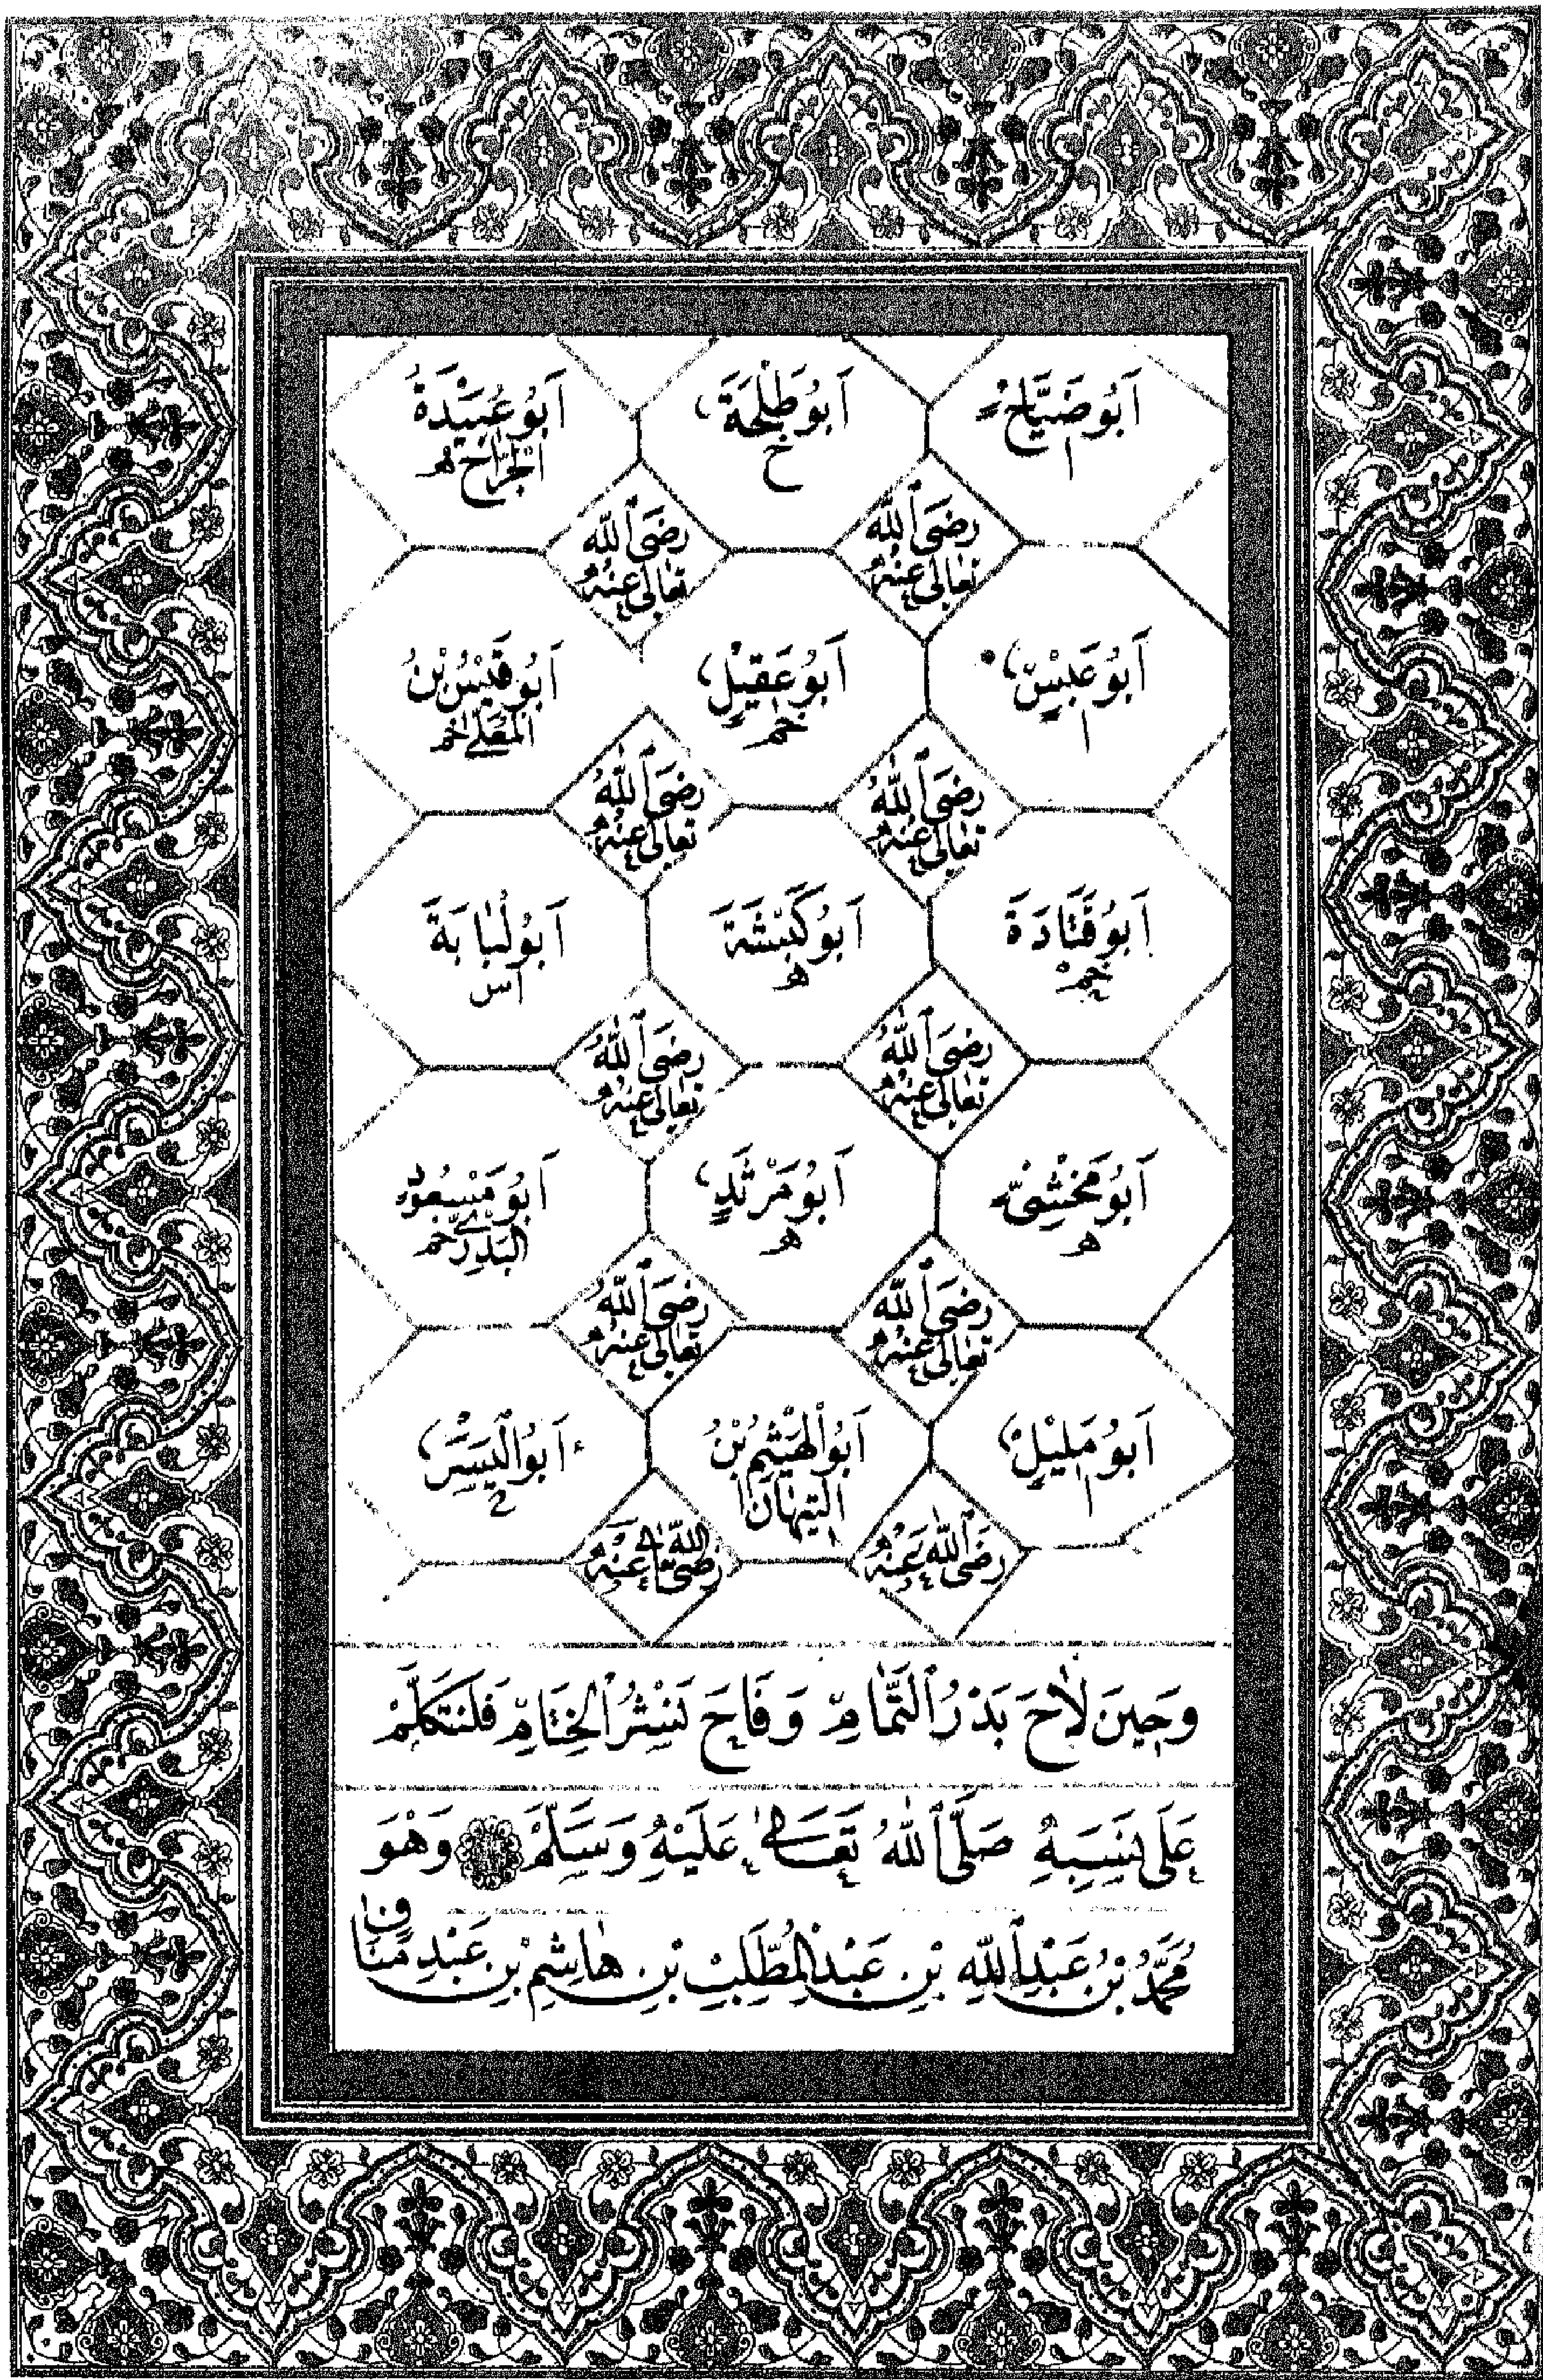 اَبُو ضَيَّاحٍ
ا
اَبُو طَلْحَةَ
خ
اَبُو عُبَيْدَةَ
الْجَرَّاحِ هـ
رَضِيَ ٱللّٰه
تَعَالٰى عَنْهُ
رَضِيَ ٱللّٰه
تَعَالٰى عَنْهُ
اَبُو عَبْسٍ
ا
اَبُو عَقِيْلٍ
خم
اَبُو قَيْسِ بْنُ
الْمُعَلّٰى خم
رَضِيَ ٱللّٰهُ
تَعَالٰى عَنْهُ
رَضِيَ ٱللّٰهُ
تَعَالٰى عَنْهُ
اَبُو قَتَادَةَ
خم
اَبُو كَبْشَةَ
هـ
اَبُو لُبَابَةَ
اس
رَضِيَ ٱللّٰهُ
تَعَالٰى عَنْهُ
رَضِيَ ٱللّٰهُ
تَعَالٰى عَنْهُ
اَبُو مَخْشِيّ
هـ
اَبُو مَرْثَدٍ
هـ
اَبُو مَسْعُودٍ
الْبَدْرِيّ خم
رَضِيَ ٱللّٰهُ
تَعَالٰى عَنْهُ
رَضِيَ ٱللّٰهُ
تَعَالٰى عَنْهُ
اَبُو مَلِيْلٍ
ا
اَبُو الْهَيْثَمِ بْنُ
التَّيِّهَانِ ا
اَبُو الْيَسَرِ
رَضِيَ ٱللّٰهُ عَنْهُ
رَضِيَ ٱللّٰهُ تَعَالٰى عَنْهُ
وَحِينَ لَاحَ بَدْرُ ٱلتَّمَامِ وَفَاحَ نَشْرُ الْخِتَامِ فَلْنَتَكَلَّمْ
عَلَى نَسَبِهِ صَلَّى ٱللّٰهُ تَعَالٰى عَلَيْهِ وَسَلَّمَ وَهُوَ
مُحَمَّدُ بْنُ عَبْدِ ٱللّٰهِ بْنِ عَبْدِ الْمُطَّلِبِ بْنِ هَاشِمِ بْنِ عَبْدِ مَنَافِ